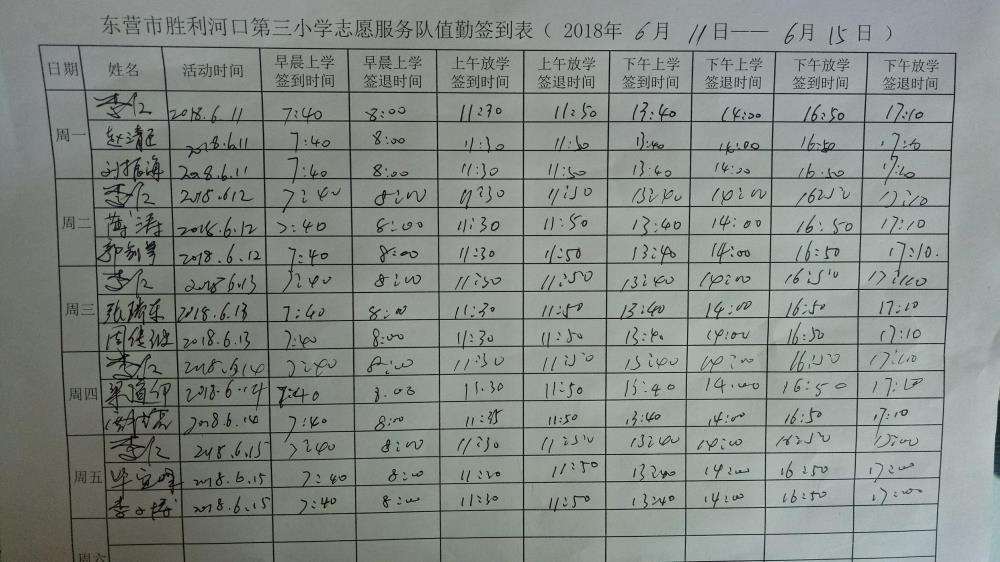 东营市胜利河口第三小学志愿服务队值勤签到表（ 2018年 6月 11日—— 6月 15日 ）
日期 姓名 活动时间 早晨上学签到时间 早晨上学签退时间 上午放学签到时间 上午放学签退时间 下午上学签到时间 下午上学签退时间 下午放学签到时间 下午放学签退时间
周一 李仁 2018.6.11 7:40 8:00 11:30 11:50 13:40 14:00 16:50 17:10
2018.6.11 7:40 8:00 11:30 11:50 13:40 14:00 16:50 17:10
刘振海 2018.6.11 7:40 8:00 11:30 11:50 13:40 14:00 16:50 17:10
周二 李仁 2018.6.12 7:40 8:00 11:30 11:50 13:40 14:00 16:50 17:10
薄涛 2018.6.12 7:40 8:00 11:30 11:50 13:40 14:00 16:50 17:10
2018.6.12 7:40 8:00 11:30 11:50 13:40 14:00 16:50 17:10.
周三 李仁 2018.6.13 7:40 8:00 11:30 11:50 13:40 14:00 16:50 17:10
张瑞东 2018.6.13 7:40 8:00 11:30 11:50 13:40 14:00 16:50 17:10
2018.6.13 7:40 8:00 11:30 11:50 13:40 14:00 16:50 17:10
周四 李仁 2018.6.14 7:40 8:00 11:30 11:50 13:40 14:00 16:50 17:10
2018.6.14 7:40 8:00 11:30 11:50 13:40 14:00 16:50 17:10
2018.6.14 7:40 8:00 11:35 11:50 13:40 14:00 16:50 17:10
周五 李仁 2018.6.15 7:40 8:00 11:30 11:50 13:40 14:00 16:50 17:00
2018.6.15 7:40 8:00 11:20 11:50 13:40 14:00 16:50 17:00
2018.6.15 7:40 8:00 11:30 11:50 13:40 14:00 16:50 17:00
周六